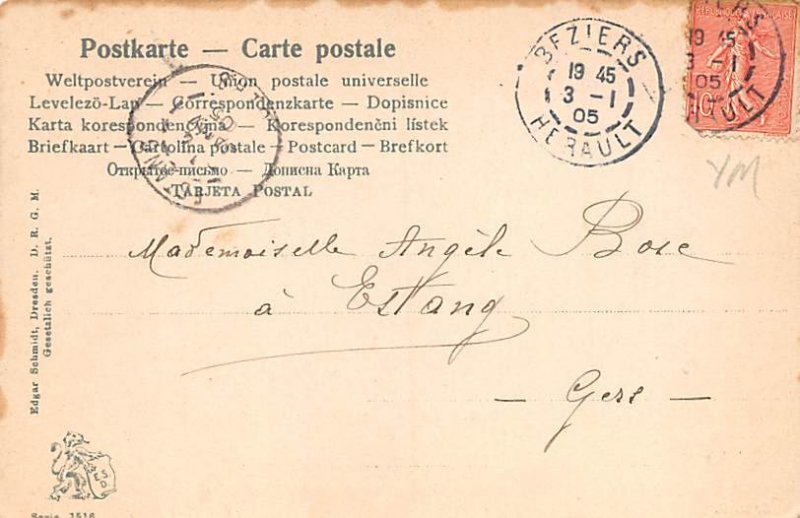 Postkarte — Carte postale
Weltpostverein — Union postale universelle
Levelező-Lap — Correspondenzkarte — Dopisnice
Karta korespondencyjna — Korespondenční lístek
Briefkaart — Cartolina postale — Postcard — Brefkort
Открытое письмо — Дописна Карта
TARJETA POSTAL
BEZIERS
19 45
3 - 1
05
HERAULT
REPUBLIQUE FRANÇAISE
19 45
3 - 1
05
10
YM
Mademoiselle Angèle Bose
à Estang
— Gers —
Edgar Schmidt, Dresden. D. R. G. M.
Gesetzlich geschützt.
Serie 1516